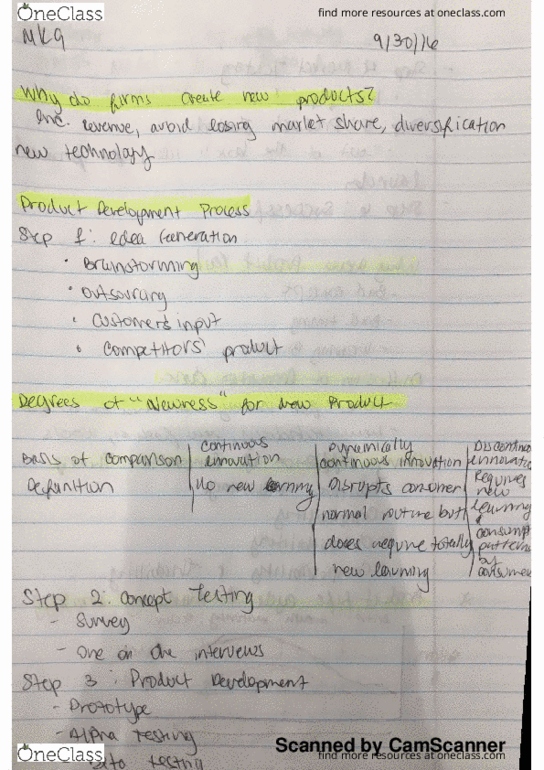 OneClass
find more resources at oneclass.com
MKG
9/30/16
Why do firms create new products?
Inc. revenue, avoid losing market share, diversification
new technology
Product Development Process
Step 1: Idea Generation
• Brainstorming
• outsourcing
• customers input
• competitors' product
Degrees of "Newness" for new Product
Basis of comparison
Definition
continuous
innovation
No new learning
Dynamically
continuous innovation
Disrupts consumer
normal routine but
doses require totally
new learning
Discontinuo
innovatio
Requires
new
learning
&
consumpt
patterns
by
consumer
Step 2: Concept Testing
- Survey
- One on One interviews
Step 3: Product Development
- Prototype
- Alpha testing
testing
Scanned by CamScanner
OneClass
find more resources at oneclass.com